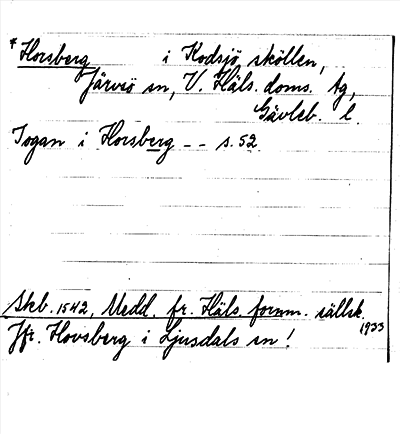 * Horsberg i Kodsjö skötlen,
Järvsö sn, V. Häls. doms. tg,
Gävleb. l.
Jogan i Horsberg -- s. 52.
Skb. 1542, Medd. fr. Häls. fornm. sällsk. 1933
Jfr. Hovsberg i Ljusdals sn!